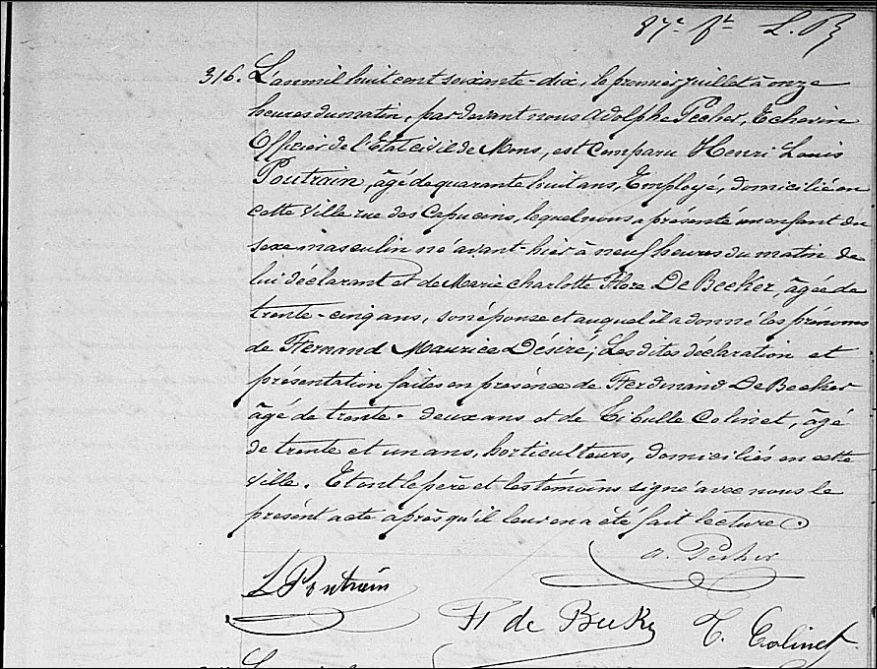 87e ft L. B
316. L'an mil huit cent soixante-dix, le premier juillet à onze
heures du matin, par devant nous Adolphe Pecher, Echevin
Officier de l'Etat civil de Mons, est comparu Henri Louis
Poutrain, âgé de quarante huit ans, Employé, domicilié en
cette Ville rue des Capucins, lequel nous a présenté un enfant du
sexe masculin né avant-hier à neuf heures du matin de
lui déclarant et de Marie Charlotte Flore De Becker, âgée de
trente-cinq ans, son épouse et auquel il a donné les prénoms
de Fernand Maurice Désiré; Les dites déclaration et
présentation faites en présence de Ferdinand De Becker
âgé de trente-deux ans et de Tibulle Colinet, âgé
de trente et un ans, horticulteurs, domiciliés en cette
Ville. Et ont le père et les témoins signé avec nous le
présent acte après qu'il leur en a été fait lecture.
A. Pecher
L Poutrain
F de Becker T. Colinet